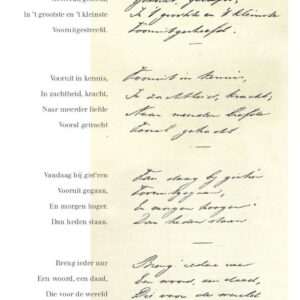 In 't grootste en 't kleinste
Vooruitgestreefd.
Vooruit in kennis,
In zachtheid, kracht,
Naar meerder liefde
Vooral getracht
Vandaag bij gist'ren
Vooruit gegaan,
En morgen hoger.
Dan heden staan.
Breng ieder uur
Een woord, een daad,
Die voor de wereld
In 't grootste en 't kleinste
Vooruitgestreefd.
Vooruit in kennis,
In zachtheid, kracht,
Naar meerder liefde
Vooral getracht.
Van daag bij gist'ren
Vooruitgegaan,
En morgen hooger
Dan heden staan.
Breng ieder uur
Een woord, een daad,
Die voor de wereld